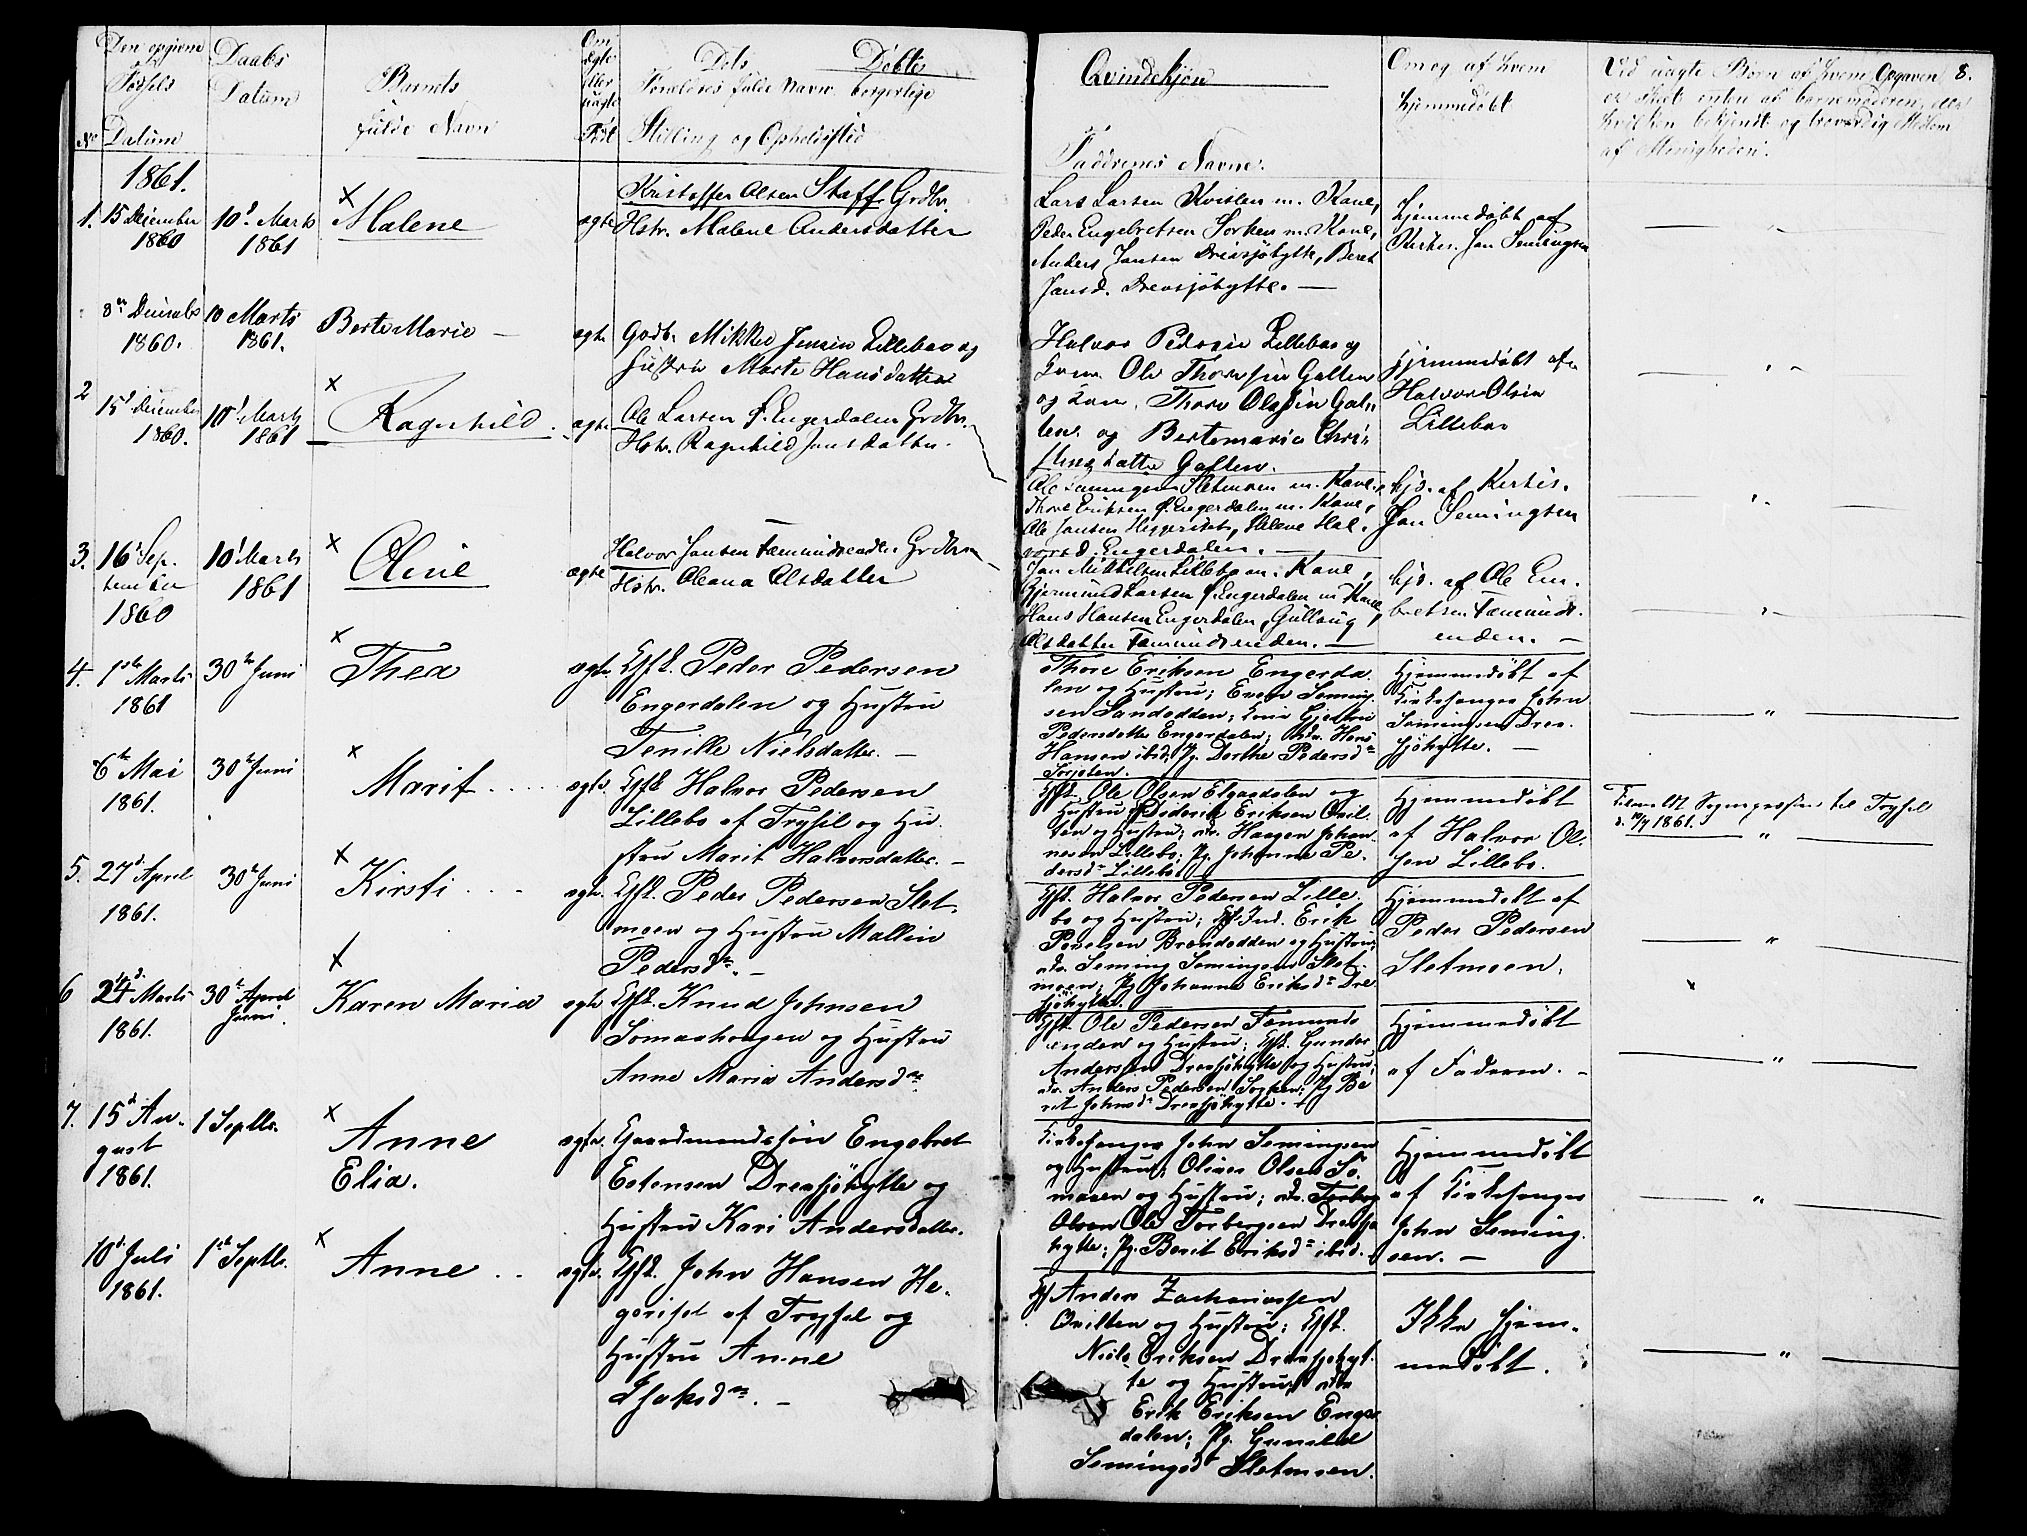 Døbte Qvindekjøn 8.
No
Den opgivne Fødsels Datum
Daabs Datum
Barnets fulde Navn
Om ægte eller uægte Født
Dets Forældres fulde Navn borgerlige Stilling og Opholdssted
Faddrenes Navne.
Om og af hvem hjemmedøbt
Vid uægte Børn af hvem Opgaven
af Menigheden.
1861.
1. 15 December 1860
10d. Marts 1861
Malene
ægte
Kristoffer Olsen Staff Grdbr.
Hstr. Malene Andersdatter
Lars Larsen Kvislen m. Kone,
Peder Engebretsen Sorken m. Kone,
Anders Jansen Drevsjöhytte, Beret
Jansd. Drevsjöhytte. —
hjemmedøbt af
Kirkes. Jan Semingsen
8de December 1860.
10 Marts 1861.
Berte Marie —
ægte
Gadb. Mikkel Jensen Lillebo og
Hustru Marte Hansdatter
Halvor Pedersen Lillebo og
Kone. Ole Thoresen Galten
og Kone, Thore Olssen Gal-
ten og Bertemarie Chri-
stensdatter Galten.
hjemmedøbt af
Halvor Olsen
Lillebo
2 15d December 1860.
10d Marts 1861
Ragnhild.
ægte
Ole Larsen S. Engerdalen Grdbr.
Hstr. Ragnhild Jansdatter.
Ole Semingsen Sletmoen m. Kone,
Thore Eriksen S. Engerdalen m. Kone,
Ole Jansen Heggeriset, Helene Hal-
vorsd. Engerdalen. —
hjd. af Kirkes.
Jan Semingsen
3. 16d Sep-
tember
1860
10d Marts 1861
Oline
ægte
Halvor Jansen Fæmundsenden Grdbr.
Hstr. Oleana Olsdatter
Jan Mikkelsen Lillebo m. Kone,
Gjermund Larsen S. Engerdalen m Kone,
Hans Hansen Engerdalen, Gullaug
Olsdatter Fæmundsenden. —
hjd. af Ole Em-
bretsen Fæmunds-
enden. —
4. 1ste Marts 1861
30te Juni
Thea
ægte
Gfst. Peder Pedersen
Engerdalen og Hustru
Tenille Nielsdatter. —
Thore Eriksen Engerda
len og Hustru; Even Seming-
sen Sandodden; Kone Gjertru
Pedersdatter Engerdalen; Ukr. Hans
Hansen ibid; Pg. Dorthe Pedersdr
Hjemmedøbt af
Kirkesanger John
Semingsen Drev-
sjöhytte. —
6te Mai 1861.
30te Juni
Marit . . . .
ægte.
Gfst. Halvor Pedersen
Lillebo af Trysil og Hu-
stru Marit Halvorsdatter. —
Gfst. Ole Olsen Elgaadalen og
Hustru; Diderik Eriksen Qvil-
ten og Hustru; Ukr. Haagen Johan-
nesen Lillebo; Pg. Johanne Pe-
dersdr Lillebo
Hjemmedøbt
af Halvor Ol-
sen Lillebo.
Tilmeldt Sognepresten til Trysil
1861.
5. 27d. April 1861.
30te Juni
Kirsti . . .
ægte.
Gfst. Peder Pedersen Slet-
moen og Hustru Mallin
Pedersdr. —
Gfst. Halvor Pedersen Lille-
bo og Hustru; Erik
Povelsen Brændodden og Hustru;
Ukr. Seming Semingsen Slet-
moen; Pg Johanne Eriksdr Dre-
sjöhytte.
Hjemmedøbt af
Peder Pedersen
Sletmoen.
6 24d. Marts 1861.
30te April
Juni.
Karen Maria
ægte
Gfst. Knud Johnsen
Somaahaugen og Hustru
Anne Maria Andersdr
Gfst. Ole Pedersen Fæmunds
enden og Hustru; Gfst. Gunder
Andersen Drevsjöhytte og Hustru;
Ukr. Anders Pedersen Sorken; Pg Be
ret Johnsdr Drevsjöhytte. —
Hjemmedøbt
af Faderen. —
7. 15d. Au-
gust
1861.
1 Septbr.
Anne
Elia.
ægte.
Gaardmandssøn Engebret
Estensen Drevsjöhytte og
Hustru Kari Andersdatter.
Kirkesanger John Semingsen
og Hustru; Oliver Olsen So
maaen og Hustru; Ukr. Torberg
Olsen Ole Torbergsen Drevsjö
hytte; Pg. Berit Eriksdr ibid. —
Hjemmedøbt
af Kirkesanger
John Seming-
sen. —
10d. Juli 1861.
1ste Septbr.
Anne . .
ægte.
Gfst. John Hansen He-
geriset af Trysil og
Hustru Anne
Isaksdr. —
Gf Anders Zachariassen
Qvilten og Hustru; Gfst.
Niels Eriksen Drevsjøhyt-
te og Hustru; Ukr
Erik Eriksen Enger
dalen; Pg. Gunild
Semingsdr Sletmoen.
Ikke hjem-
medøbt.